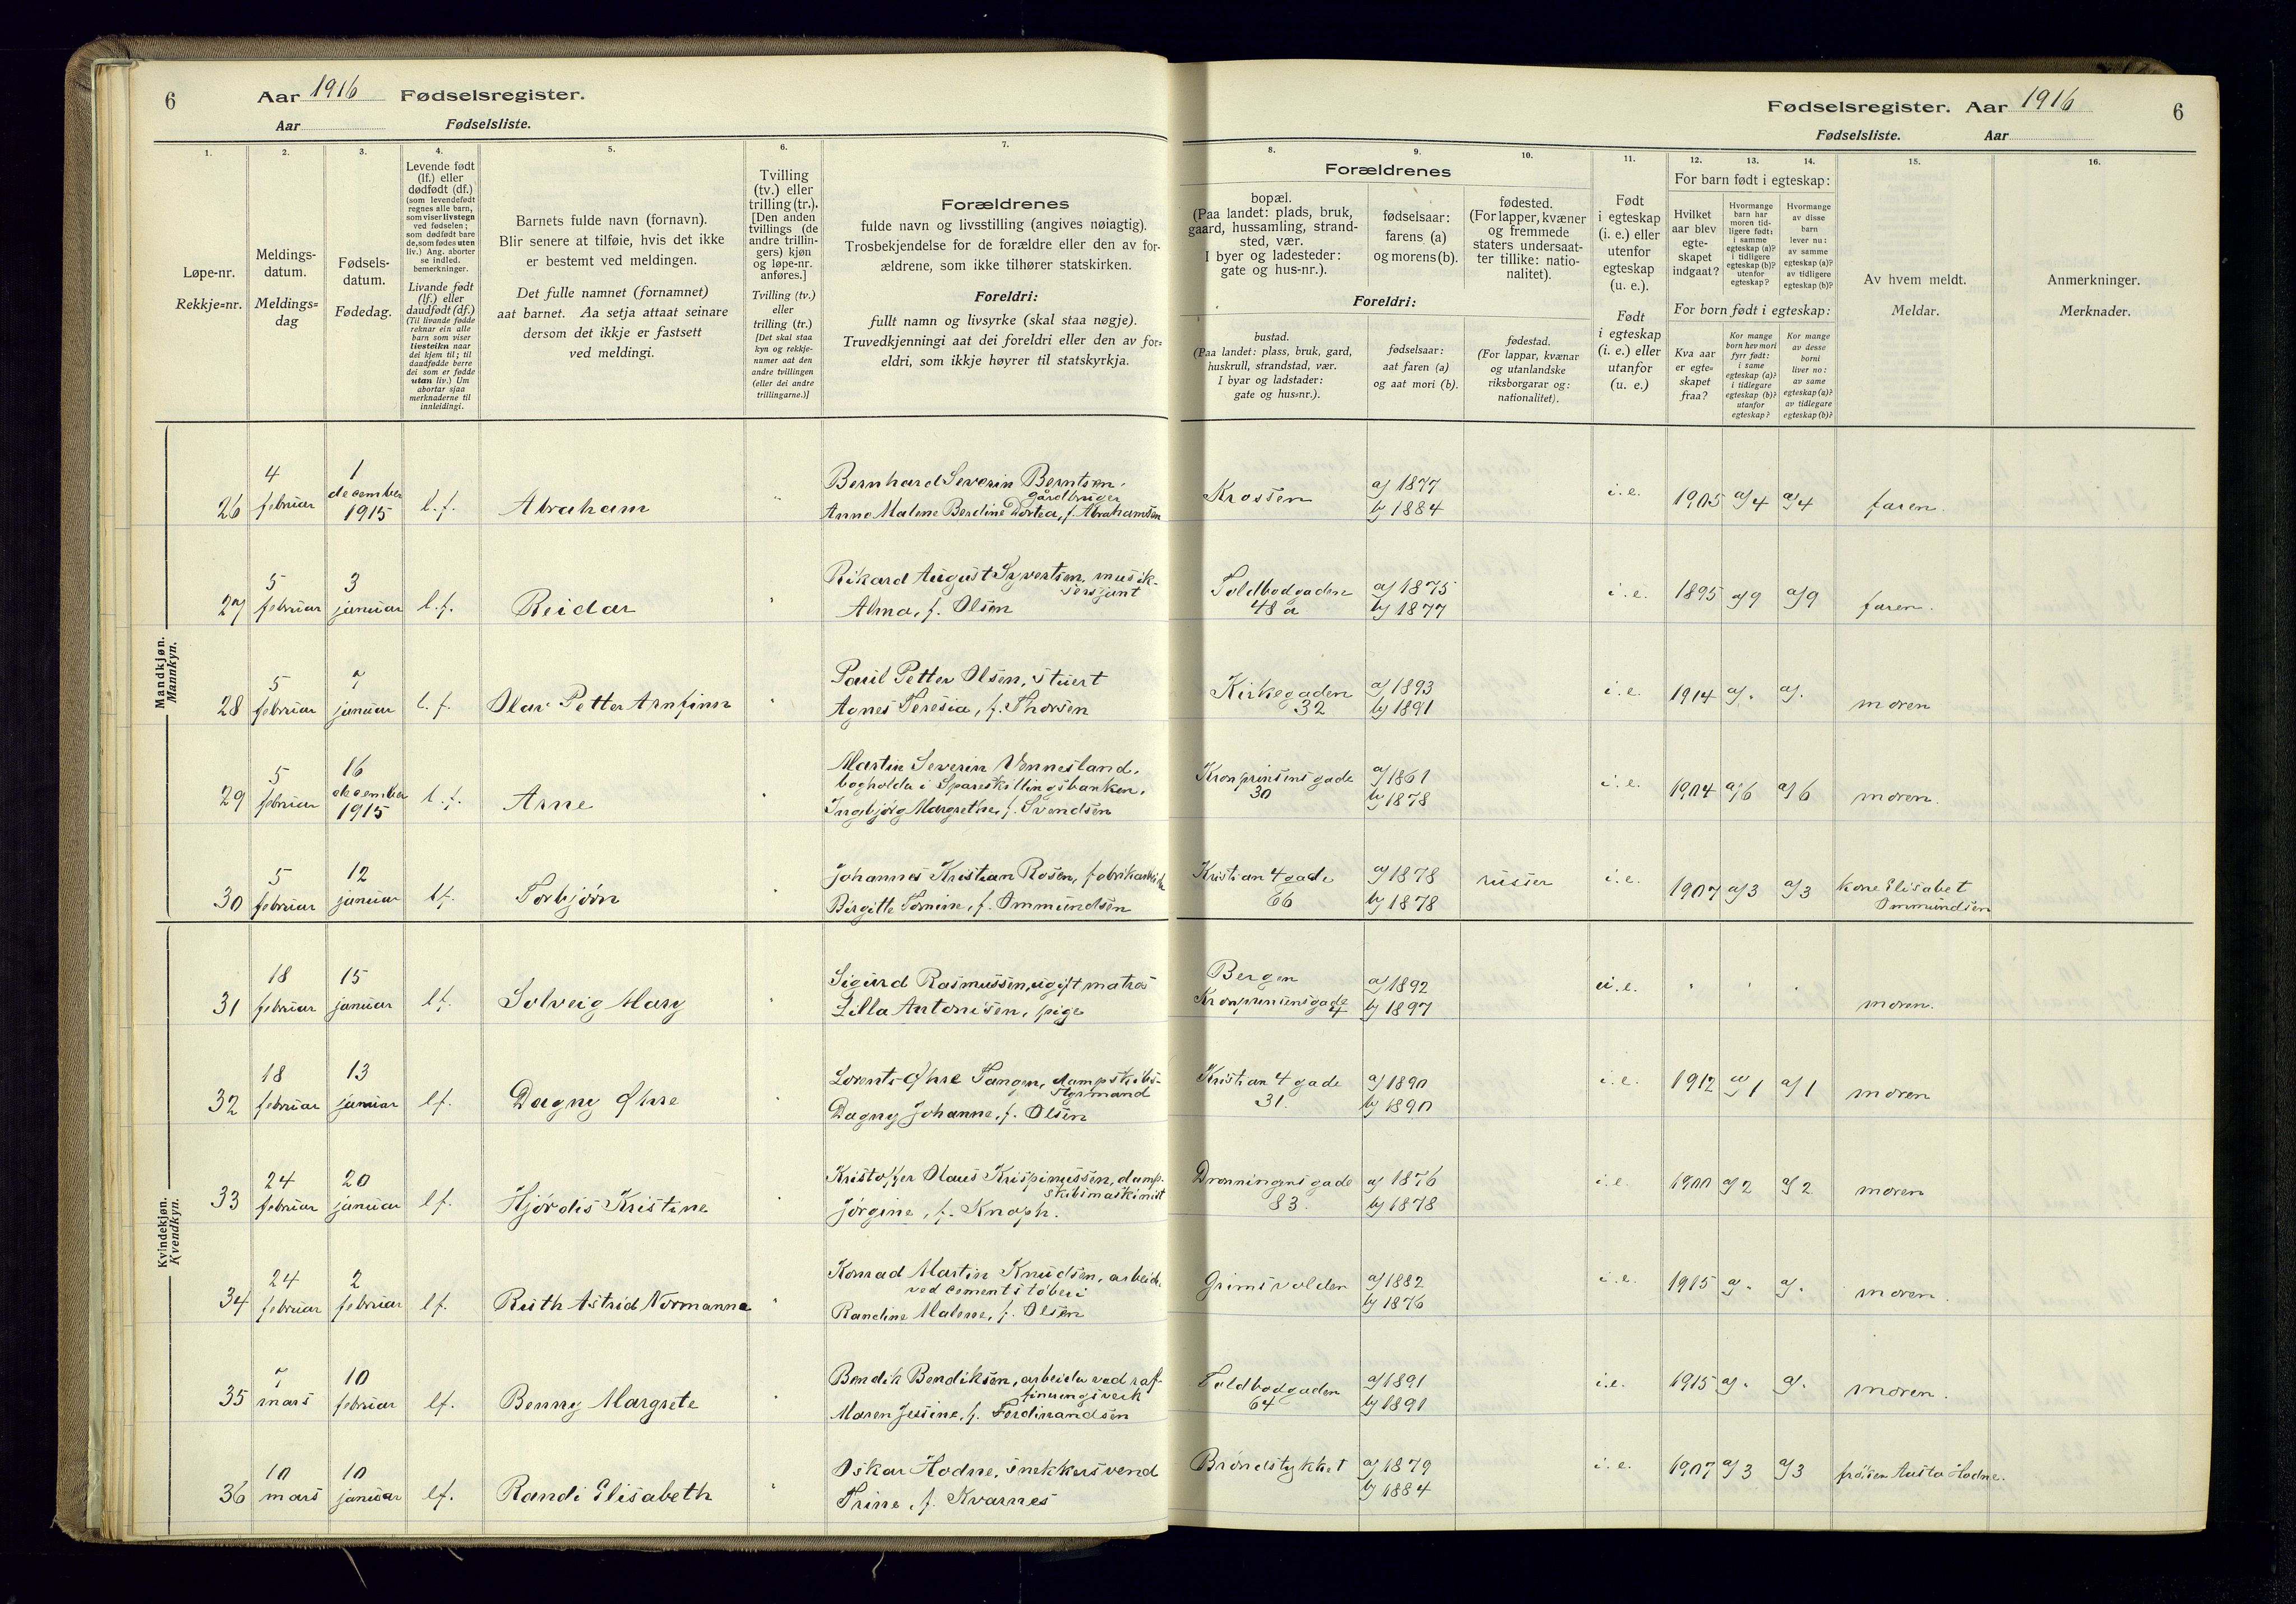 6
Aar 1916 Fødselsregister.
Aar Fødselsliste.
Fødselsregister. Aar 1916
6
Fødselsliste. Aar
1.
Løpe-nr.
Rekkje=nr.
2.
Meldings-
datum.
Meldings=
dag
3.
Fødsels-
datum.
Fødedag.
4.
Levende født
(lf.) eller
dødfødt (df.)
(som levendefødt
regnes alle barn,
som viser livstegn
ved fødselen;
som dødfødt bare
de, som fødes uten
liv.) Ang. aborter
se indled.
bemerkninger.
Livande født
(lf.) eller
daudfødt (df.)
(Til livande fødde
reknar ein alle
barn som viser
livsteikn naar
dei kjem til; til
daudfødde berre
dei som er fødde
utan liv.) Um
abortar sjaa
merknaderne til
innleidingi.
5.
Barnets fulde navn (fornavn).
Blir senere at tilføie, hvis det ikke
er bestemt ved meldingen.
Det fulle namnet (fornamnet)
aat barnet. Aa setja attaat seinare
dersom det ikkje er fastsett
ved meldingi.
6.
Tvilling
(tv.) eller
trilling (tr.).
[Den anden
tvillings (de
andre trillin-
gers) kjøn
og løpe-nr.
anføres.]
Tvilling (tv.)
eller
trilling (tr.)
[Det skal staa
kyn og rekkje-
numer aat den
andre tvillingen
(eller dei andre
trillingarne.)]
7.
Forældrenes
fulde navn og livsstilling (angives nøiagtig).
Trosbekjendelse for de forældre eller den av for-
ældrene, som ikke tilhører statskirken.
Foreldri:
fullt namn og livsyrke (skal staa nøgje).
Truvedkjenningi aat dei foreldri eller den av for=
eldri, som ikkje høyrer til statskyrkja.
Forældrenes
8.
bopæl.
(Paa landet: plads, bruk,
gaard, hussamling, strand-
sted, vær.
I byer og ladesteder:
gate og hus-nr.).
9.
fødselsaar:
farens (a)
og morens (b).
10.
fødested.
(For lapper, kvæner
og fremmede
staters undersaat-
ter tillike: natio-
nalitet).
Foreldri:
bustad.
(Paa landet: plass, bruk, gard,
huskrull, strandstad, vær.
I byar og ladstader:
gate og hus=nr.).
fødselsaar:
aat faren (a)
og aat mori (b).
fødestad.
(For lappar, kvænar
og utanlandske
riksborgarar og:
nationalitet).
11.
Født
i egteskap
(i. e.) eller
utenfor
egteskap
(u. e.).
Født
i egteskap
(i. e.) eller
utanfor
(u. e.)
12. 13. 14.
For barn født i egteskap:
Hvilket
aar blev
egte-
skapet
indgaat?
Hvormange
barn har
moren tid-
ligere født:
i samme
egteskap (a)?
i tidligere
egteskap (b)?
utenfor
egteskap?
Hvormange
av disse
barn
lever nu:
av samme
egteskap (a)?
av tidligere
egteskap (b)?
For born født i egteskap:
Kva aar
er egte=
skapet
fraa?
Kor mange
born hev mori
fyrr født:
i same
egteskap (a)?
i tidlegare
egteskap (b)?
utanfor
egteskap?
Kor mange
av desse
borni
liver no:
av same
egteskap (a)?
av tidlegare
egteskap (b)?
15.
Av hvem meldt.
Meldar.
16.
Anmerkninger.
Merknader.
Mandkjøn.
Mannkyn.
26 4 februar 1 december 1915 l.f. Abraham
Bernhard Severin Berntsen,
gårdbruger
Anna Malene Berdine Dortea, f. Abrahamsen
Krossen a) 1877 b) 1884 i.e. 1905 a) 4 a) 4 faren.
27 5 februar 3 januar l.f. Reidar
Rikard August Syvertsen, musik-
sersjant
Alma, f. Olsen
Toldbodgaden 48 a a) 1875 b) 1877 i.e. 1895 a) 9 a) 9 faren.
28 5 februar 7 januar l.f. Olav Petter Arnfinn
Paul Petter Olsen, stuert
Agnes Teresia, f. Thorsen
Kirkegaden 32 a) 1893 b) 1891 i.e. 1914 a). a). moren
29 5 februar 16 december 1915 l.f. Arne
Martin Severin Vennesland,
bogholder i Spareskillingsbanken,
Ingebjørg Margrethe, f. Svendsen
Kronprinsensgade 30 a) 1861 b) 1878 i.e. 1904 a) 6 a) 6 moren.
30 5 februar 12 januar lf. Torbjørn
Johannes Kristian Rosen, fabrikarbeider
Birgitte Tomine, f. Ommundsen
Kristian 4 gade 66 a) 1878 b) 1878 russer i.e. 1907 a) 3 a) 3 kone Elisabet
Ommundsen
Kvindekjøn.
Kvendkyn.
31 18 februar 15 januar lf. Solveig Mary
Sigurd Rasmussen, ugift matros
Lilla Antonisen, pige
Bergen
Kronprinsensgade 4 a) 1892 b) 1897 u.e. moren.
32 18 februar 13 januar lf. Dagny Øhre
Lorents Øhre Tangen, dampskibs-
styrmand
Dagny Johanne, f. Olsen
Kristian 4 gade 31. a) 1890 b) 1890 i.e. 1912 a) 1 a) 1 moren
33 24 februar 20 januar lf. Hjørdis Kristine
Kristoffer Olaus Krispinussen, damp-
skibsmaskinist
Jørgine, f. Knoph.
Dronningensgade 83. a) 1876 b) 1878 i.e. 1900 a) 2 a) 2 moren
34 24 februar 2 februar lf. Ruth Astrid Normanna
Konrad Martin Knudsen, arbeid.
ved cementstøberi
Randine Malene, f. Olsen
Grimsvolden a) 1882 b) 1876 i.e. 1915 a). a). moren.
35 7 mars 10 februar lf. Benny Margrete
Bendik Bendiksen, arbeider ved raf-
fineringsverk
Maren Jessine, f. Ferdinandsen
Toldbodgaden 64 a) 1891 b) 1891 i.e. 1915 a). a). moren.
36 10 mars 10 januar lf. Randi Elisabeth
Oskar Hodne, snekkersvend
Trine, f. Kvarnes
Brøndstykket a) 1879 b) 1884 i.e. 1907 a) 3 a) 3 frøken Asta Hodne.